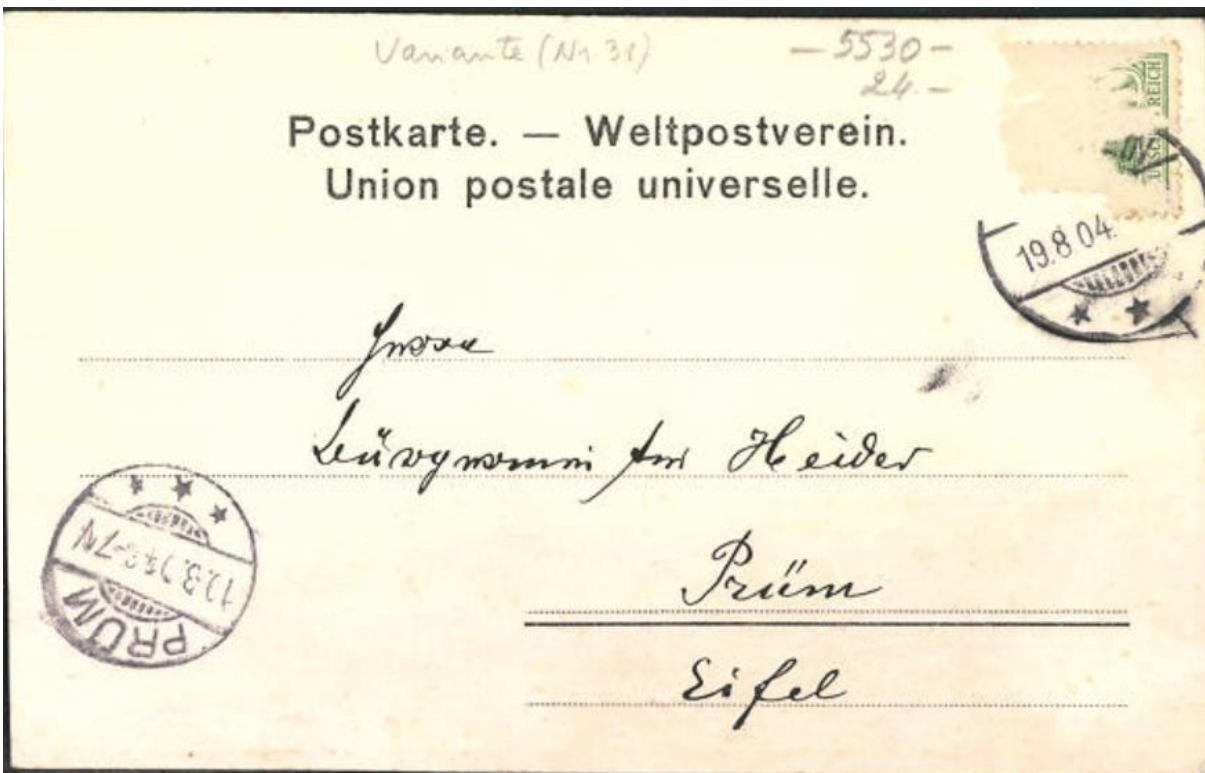 Variante (Nr. 31)
—5530—
24.—
Postkarte. — Weltpostverein.
Union postale universelle.
REICH
19.8.04.
Herrn
Bürgermeister Heider
Prüm
Eifel
PRÜM